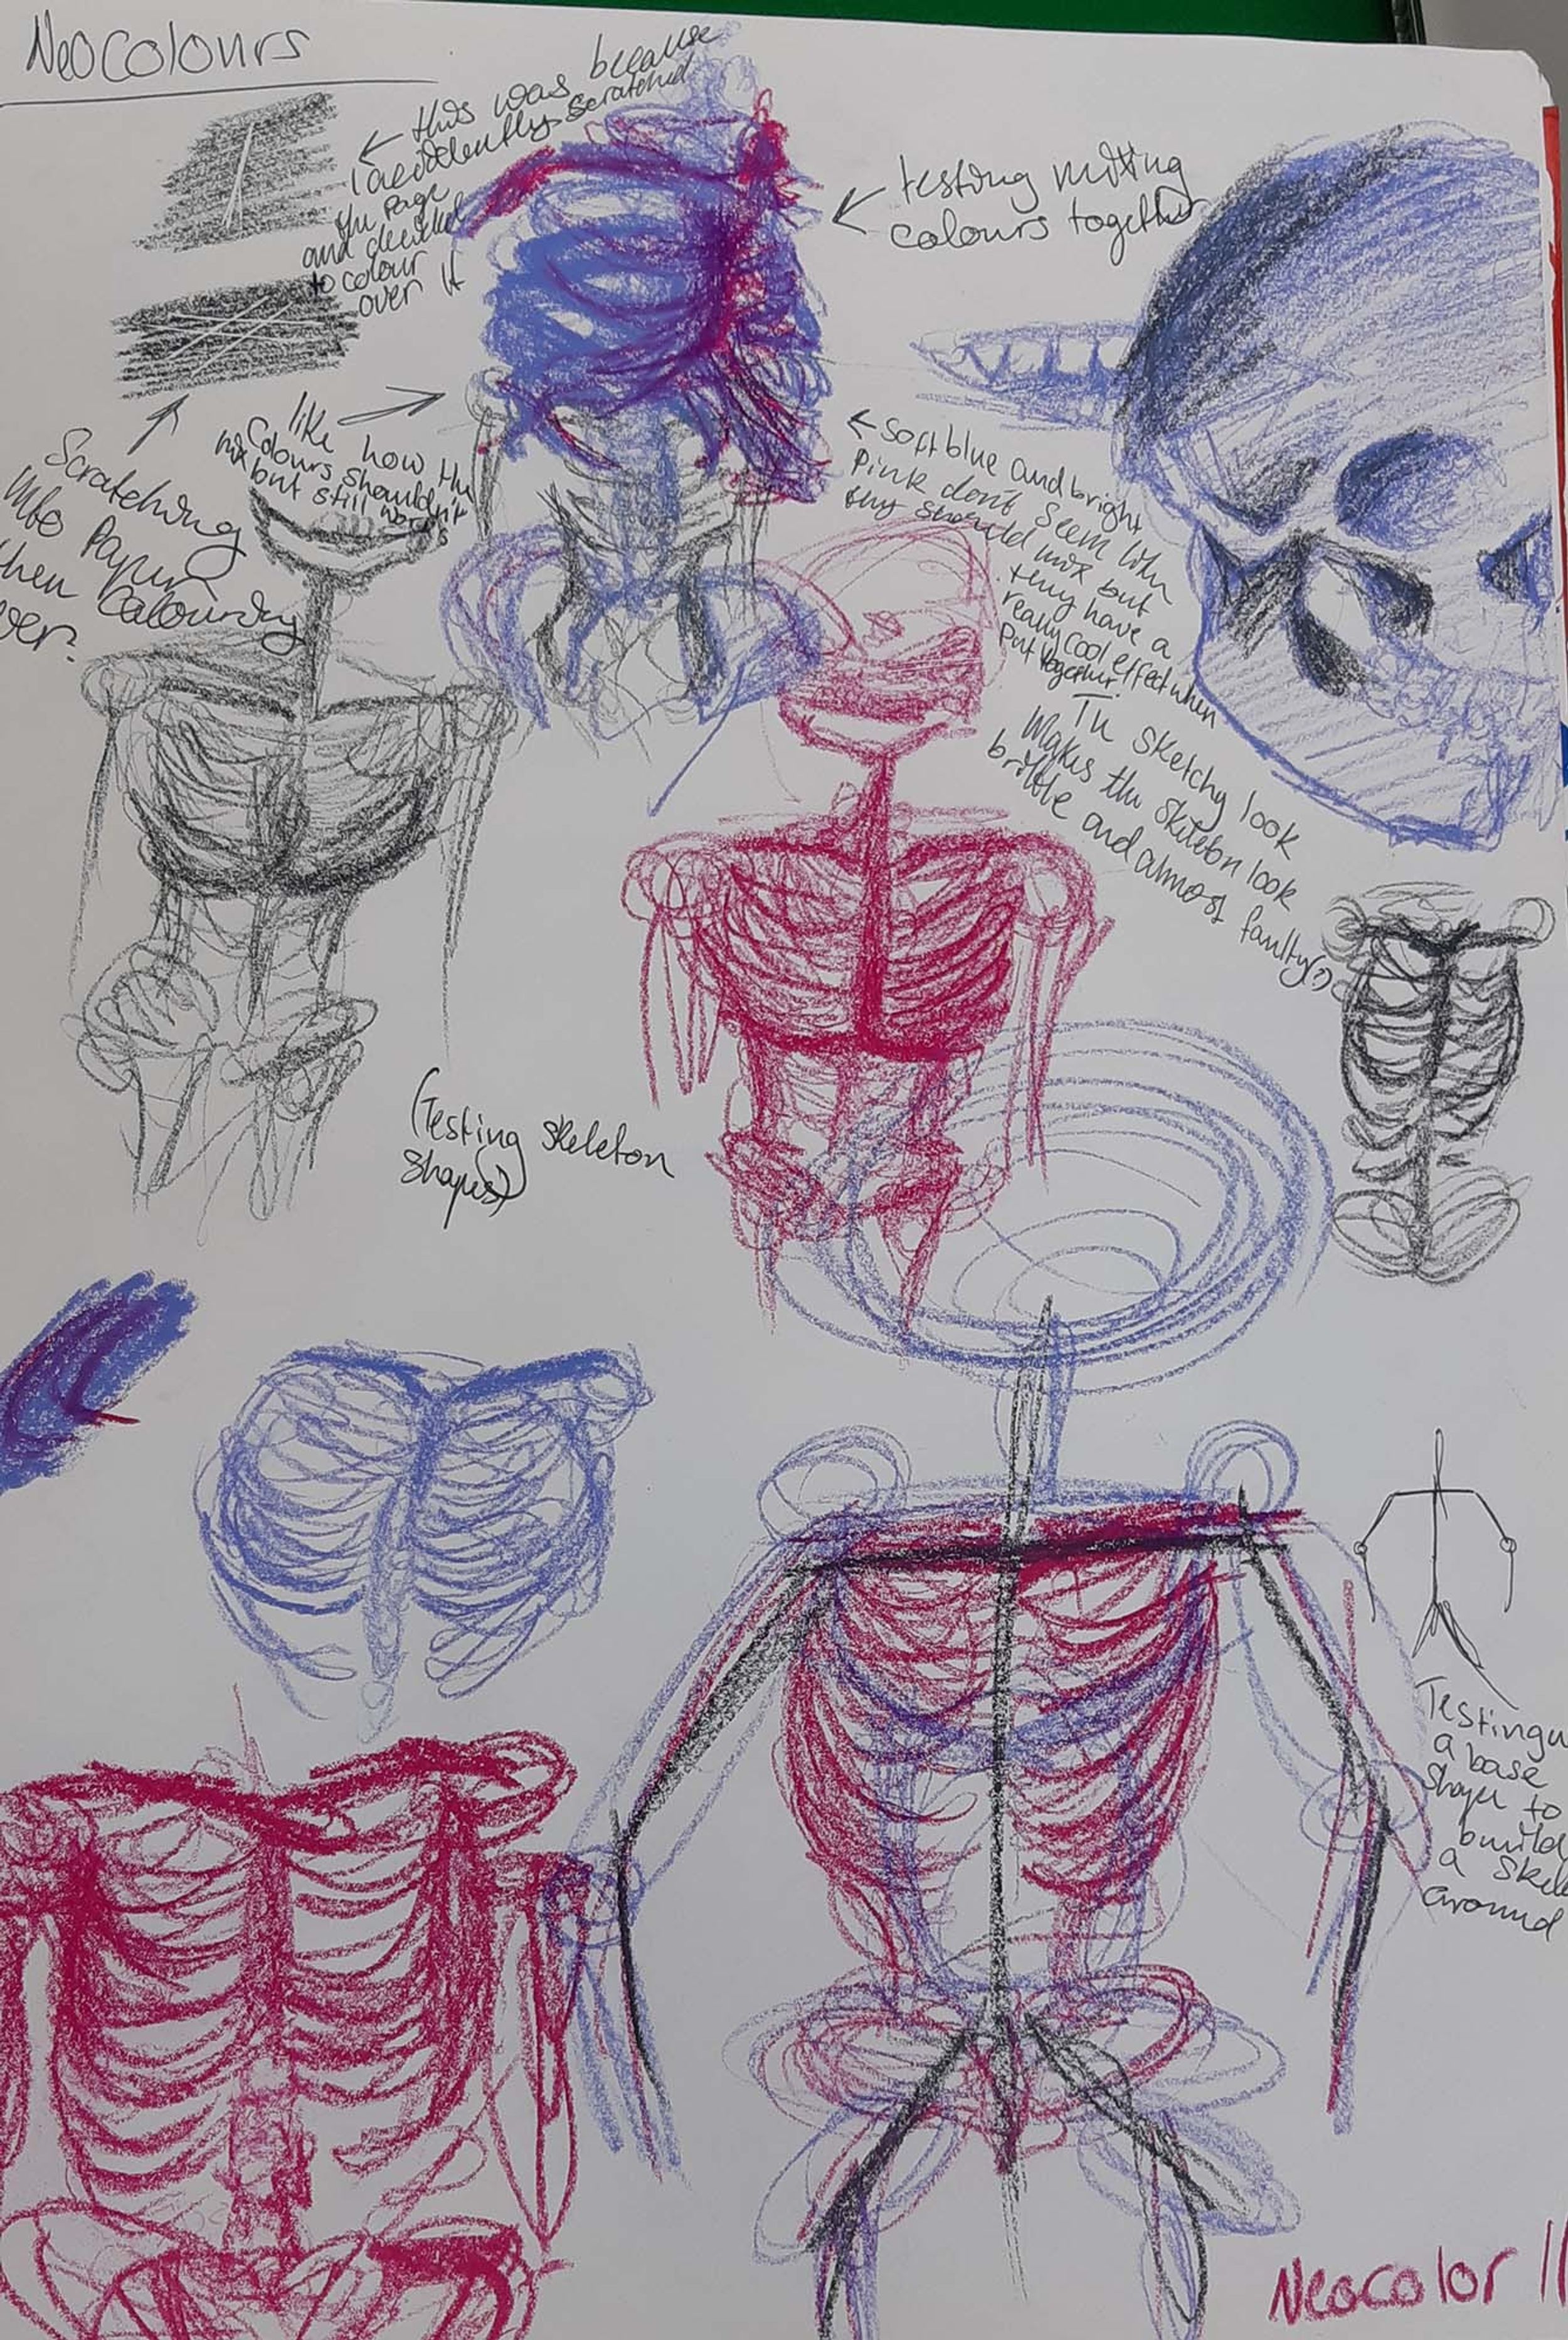 Neocolours
← this was because
I accidently scratched
the page
and decided
to colour
over it
← testing mixing
colours together
Scratching
into Paper
then Colouring
over?
like how the
Colours shouldn't
mix but still works
← Soft blue and bright
Pink dont seem like
they should mix but
they have a
really cool effect when
put together.
The sketchy look
Makes the skeleton look
brittle and almost faulty(?)
(Testing skeleton
shapes)
Testing
a base
shape to
build
a Skel
around
Neocolor II